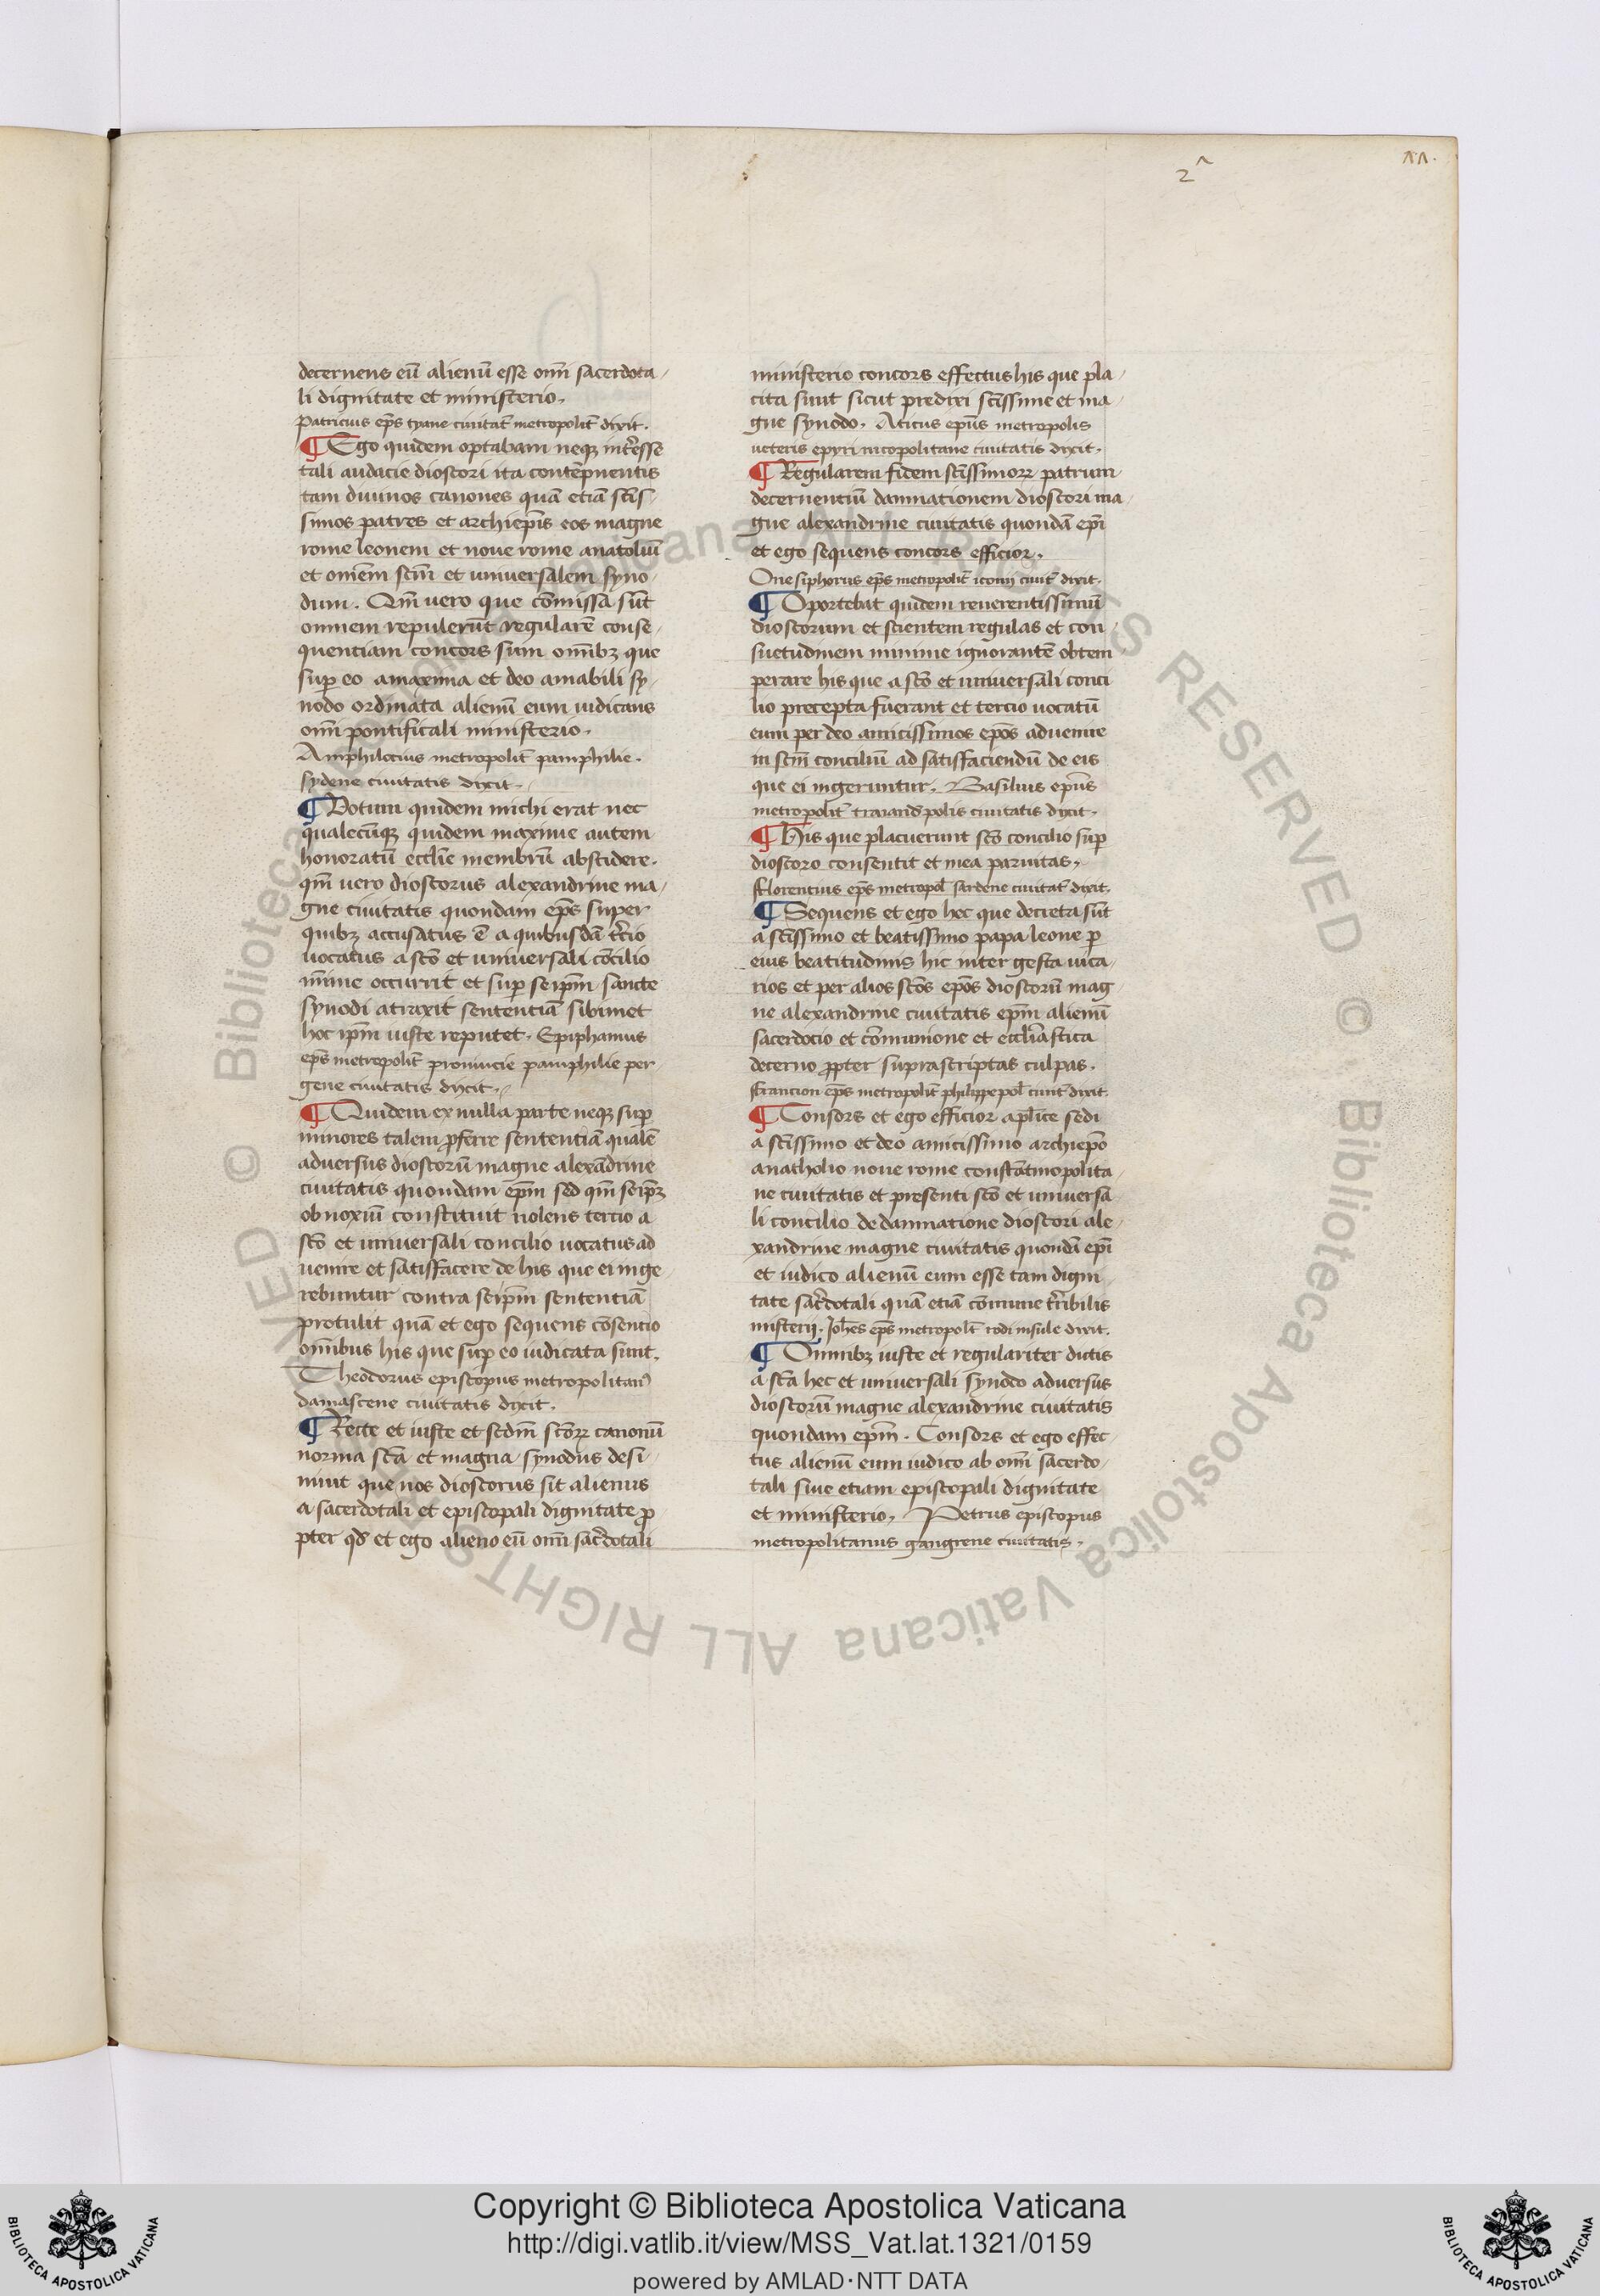 2^
decernens eū alienū esse om̄i sacerdota-
li dignitate et ministerio.
Patricius ep̄s tyane ciuitat̄ metropolit̄ dixit.
¶ Ego quidem optabam neqꝫ int̄esse
tali audacie dioscori ita contēpnentis
tam diuinos canones quā etiā sc̄is-
simos patres et archiep̄is eos magne
rome leonem et noue rome anatoliū
et om̄em sc̄m et uniuersalem syno-
dum. Qm̄ uero que com̄issa sūt
omnem repulerūt regularē conse-
quentiam concors sum om̄ibꝫ que
suꝑ eo a maxima et deo amabili sy-
nodo ordinata alienū eum iudicans
om̄i pontificali ministerio.
Amphilocius metropolit̄ pamphilie.
sydene ciuitatis dixit.
¶ Votum quidem michi erat nec
qualecūqꝫ quidem maxime autem
honoratū eccl̄ie membrū abscidere.
qm̄ uero dioscorus alexandrine ma-
gne ciuitatis quondam ep̄s super
quibꝫ accusatus ē a quibusdā t̄cio
uocatus a sc̄o et uniuersali cōcilio
mīme occurrit et suꝑ seip̄m sancte
synodi atraxit sententiā sibimet
hoc ip̄m iuste reputet. Epiphanius
ep̄s metropolit̄ prouincie pamphilie per-
gene ciuitatis dixit.
¶ Quidem ex nulla parte neqꝫ suꝑ
minores talem ꝓferre sententiā qualē
aduersus dioscorū magne alexādrine
ciuitatis quondam ep̄m sed qm̄ seip̄ꝫ
obnoxiū constituit nolens tercio a
sc̄o et uniuersali concilio uocatus ad
uenire et satisfacere de his que ei inge-
rebuntur contra seip̄m sententiā
protulit quā et ego sequens cōsentio
om̄ibus his que suꝑ eo iudicata sunt.
Theodorus episcopus metropolitanꝰ
damascene ciuitatis dixit.
¶ Recte et iuste et scd̄m sc̄oꝝ canonū
norma sc̄a et magna synodus desi-
niuit que nos dioscorus sit alienus
a sacerdotali et episcopali dignitate ꝓ
pter qd̄ et ego alieno eū om̄i sac̄dotali
ministerio concors effectus his que pla-
cita sunt sicut predixi sc̄issime et ma-
gne synodo. Aticus ep̄us metropolis
ueteris epyri nicopolitane ciuitatis dixit.
¶ Regularem fidem sc̄issimoꝝ patrum
decernentiū damnationem dioscori ma-
gne alexandrine ciuitatis quondā ep̄i
et ego sequens concors efficior.
Onesiphorus ep̄s metropolit̄ iconij ciuit̄ dixit.
¶ Oportebat quidem reuerentissimū
dioscorum et scientem regulas et con-
suetudinem minime ignorantē obtem
perare his que a sc̄o et uniuersali conci
lio precepta fuerant et tercio uocatū
eum per deo amicissimos ep̄os aduenire
in sc̄m conciliū ad satisfaciendū de eis
que ei ingeruntur. Basilius ep̄us
metropolit̄ traianopolis ciuitatis dixit.
¶ His que placuerunt sc̄o concilio suꝑ
dioscoro consentit et mea paruitas.
Florentius ep̄s metropol̄ sardene ciuitat̄ dixit.
¶ Sequens et ego hec que decreta sūt
a sc̄issimo et beatissimo papa leone ꝑ
eius beatitudinis hic inter gesta uica-
rios et per alios sc̄os ep̄os dioscorū mag
ne alexandrine ciuitatis ep̄m alienū
sacerdocio et com̄unione et eccl̄iastica
decerno ꝓpter suprascriptas culpas.
Francion ep̄s metropolit̄ philippopol̄ ciuit̄ dixit.
¶ Consors et ego efficior apl̄ice sedi
a sc̄issimo et deo amicissimo archiep̄o
anatholio noue rome constātinopolita-
ne ciuitatis et presenti sc̄o et uniuersa-
li concilio de damnatione dioscori ale-
xandrine magne ciuitatis quondā ep̄i
et iudico alienū eum esse tam digni-
tate sac̄dotali quā etiā com̄une t̄ribilis
misterij. Joh̄es ep̄s metropolit̄ rodi insule dixit.
¶ Omnibꝫ iuste et regulariter dictis
a sc̄a hec et uniuersali synodo aduersus
dioscorū magne alexandrine ciuitatis
quondam ep̄m. Consors et ego effec-
tus alienū eum iudico ab om̄i sacerdo-
tali siue etiam episcopali dignitate
et ministerio. Petrus episcopus
metropolitanus gangrene ciuitatis.
© Biblioteca Apostolica Vaticana ALL RIGHTS RESERVED
Copyright © Biblioteca Apostolica Vaticana
http://digi.vatlib.it/view/MSS_Vat.lat.1321/0159
powered by AMLAD·NTT DATA
BIBLIOTECA APOSTOLICA VATICANA
BIBLIOTECA APOSTOLICA VATICANA